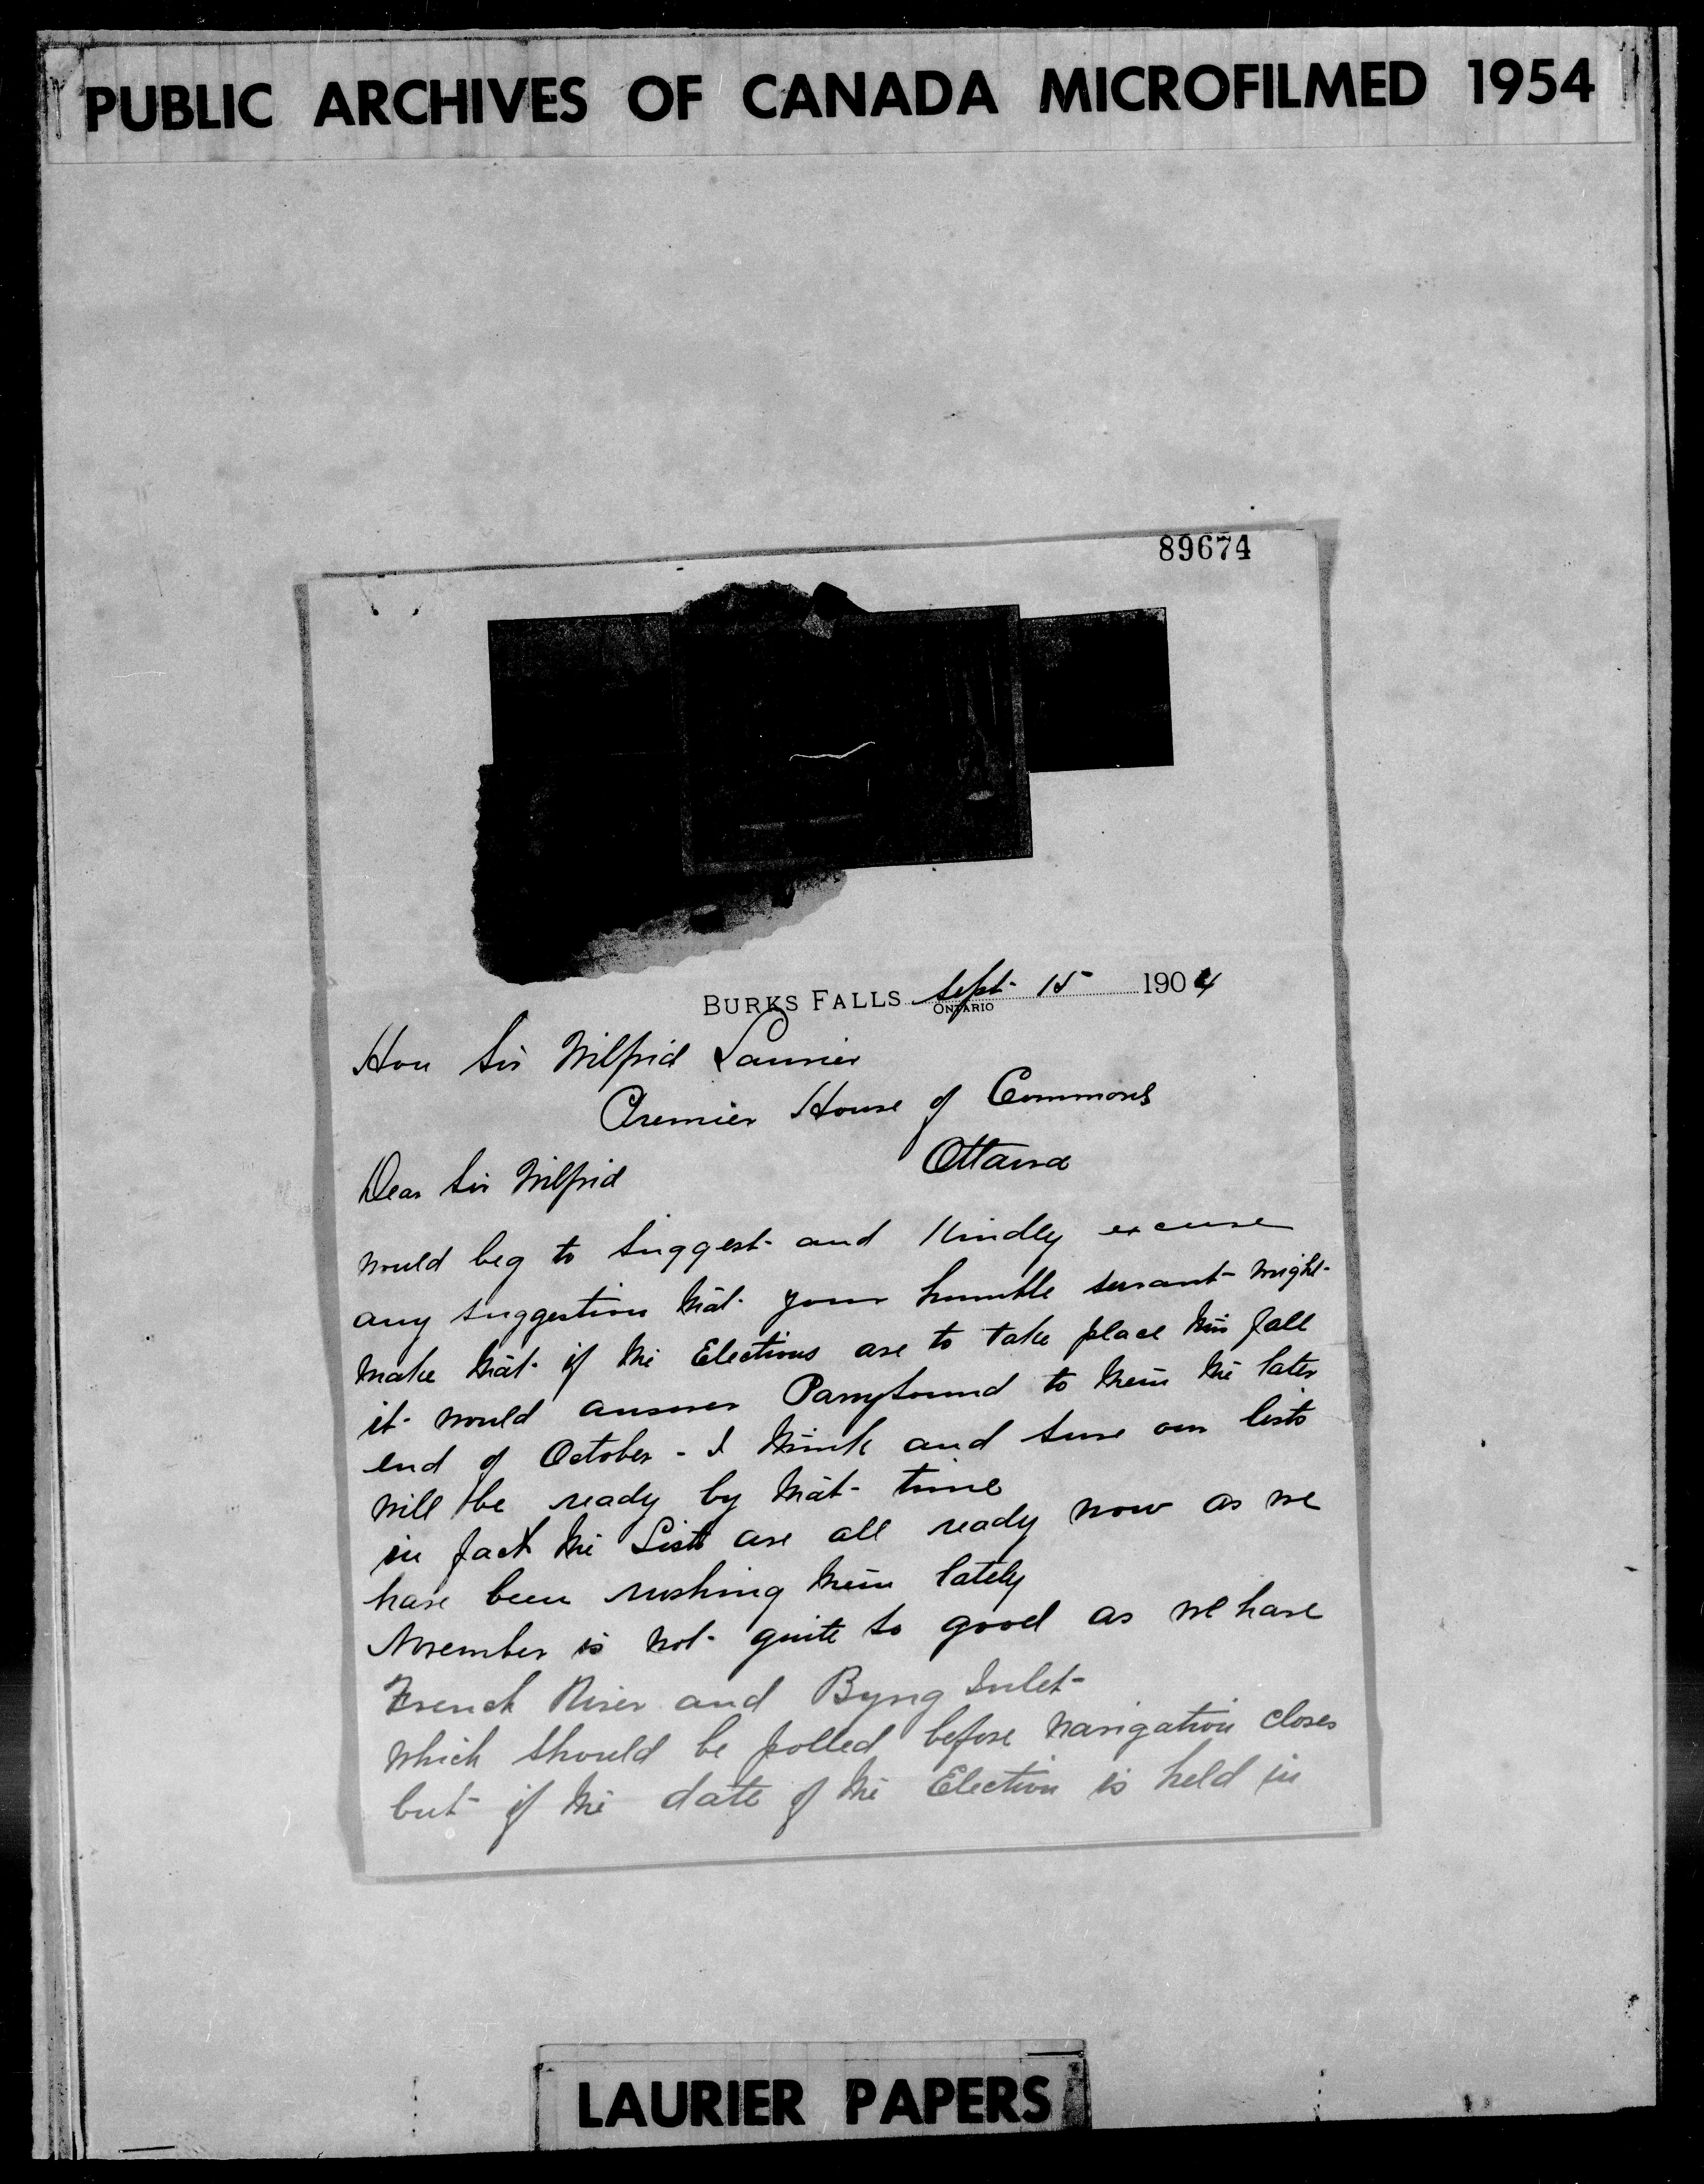 PUBLIC ARCHIVES OF CANADA MICROFILMED 1954
89674
BURKS FALLS Sept 15 1904
ONTARIO
Hon Sir Wilfrid Laurier
Premier House of Commons
Ottawa
Dear Sir Wilfrid
would beg to suggest and Kindly excuse
any suggestion that your humble servant might
make that if the Elections are to take place this fall
it would answer Parrysound to them the later
end of October - I think and sure our lists
will be ready by that time
in fact the Lists are all ready now as we
have been rushing them lately
November is not quite so good as we have
French River and Byng Inlet
which should be polled before navigation closes
but if the date of the Election is held in
LAURIER PAPERS